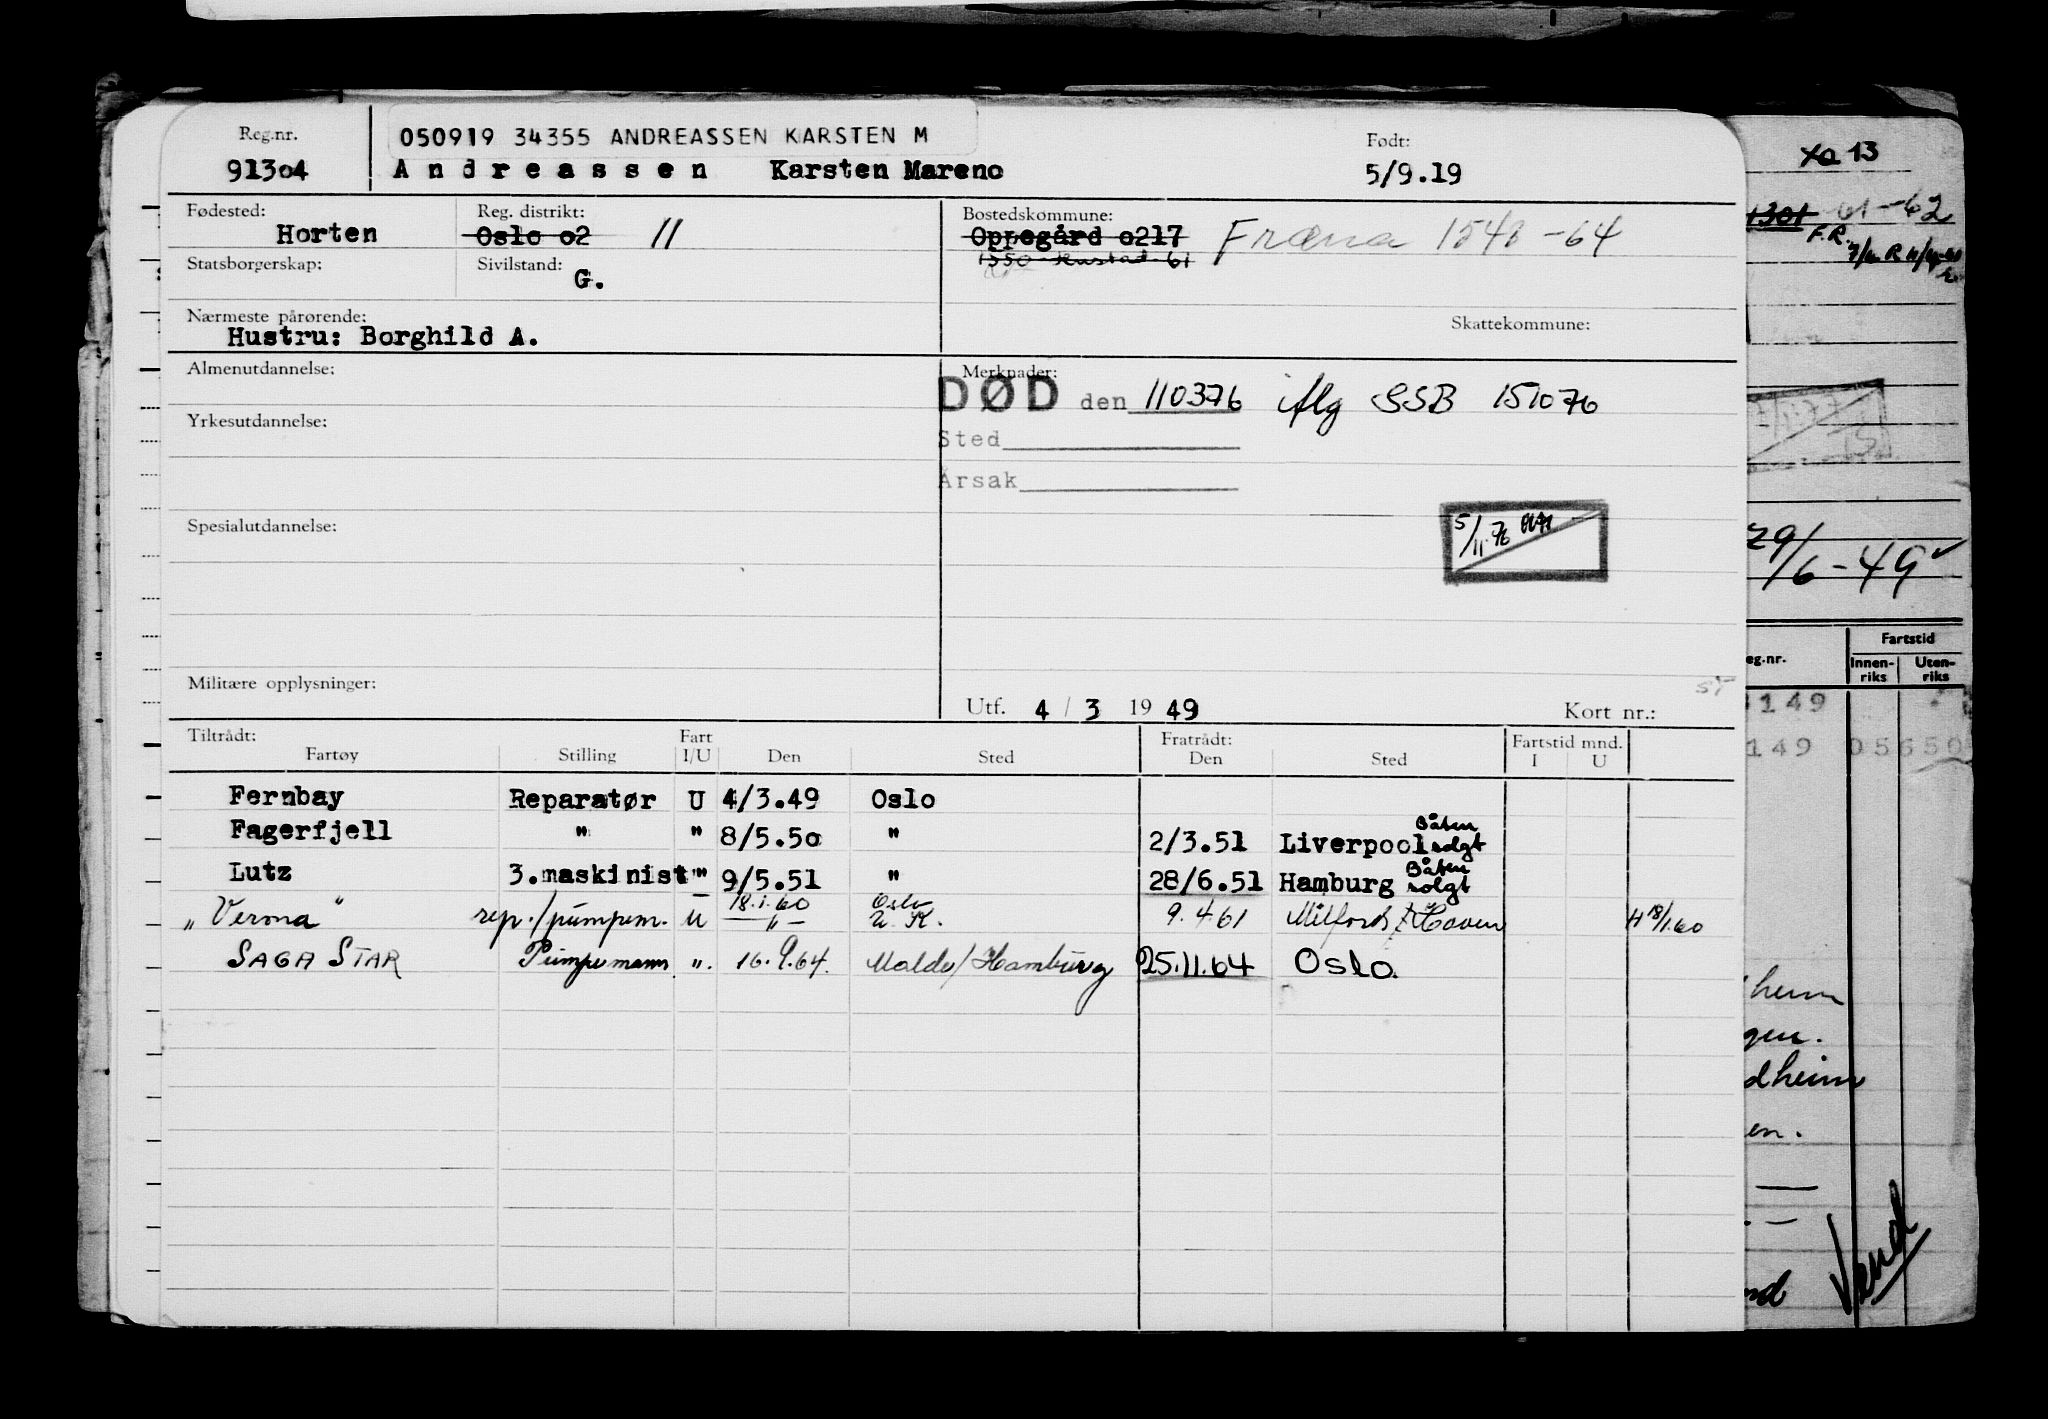 Reg.nr.
91304
050919 34355 ANDREASSEN KARSTEN M
Andreassen Karsten Mareno
Født:
5/9.19
Fødested:
Horten
Reg. distrikt:
Oslo o2 11
Bostedskommune:
Oppegård o217 Fræna 1548 -64
1550 Hustad 61
Statsborgerskap:
Sivilstand:
G.
Nærmeste pårørende:
Hustru: Borghild A.
Skattekommune:
Almenutdannelse:
Merknader:
DØD den 110376 iflg SSB 151076
Yrkesutdannelse:
Sted
Årsak
Spesialutdannelse:
5/11-76
Militære opplysninger:
Utf. 4 / 3 19 49
Kort nr.:
Tiltrådt: Fratrådt:
Fartøy Stilling Fart I/U Den Sted Den Sted Fartstid mnd. I U
Fernbay Reparatør U 4/3.49 Oslo
Fagerfjell " " 8/5.50 " 2/3.51 Liverpool Båten solgt
Lutz 3.maskinist " 9/5.51 " 28/6.51 Hamburg Båten solgt
18.1.60 Oslo
"Verona" rep./pumpem. U —"— U.K. 9.4.61 Milford Haven H 18/1.60
SAGA STAR Pumpemann ". 16.9.64. Molde/Hamburg 25.11.64 Oslo
13
1301 61-62
F.R.
29/6-49
eg.nr.
Fartstid
Innen-riks Uten-riks
149
149 05650
heim
gen.
dheim
en.
nd
Vend